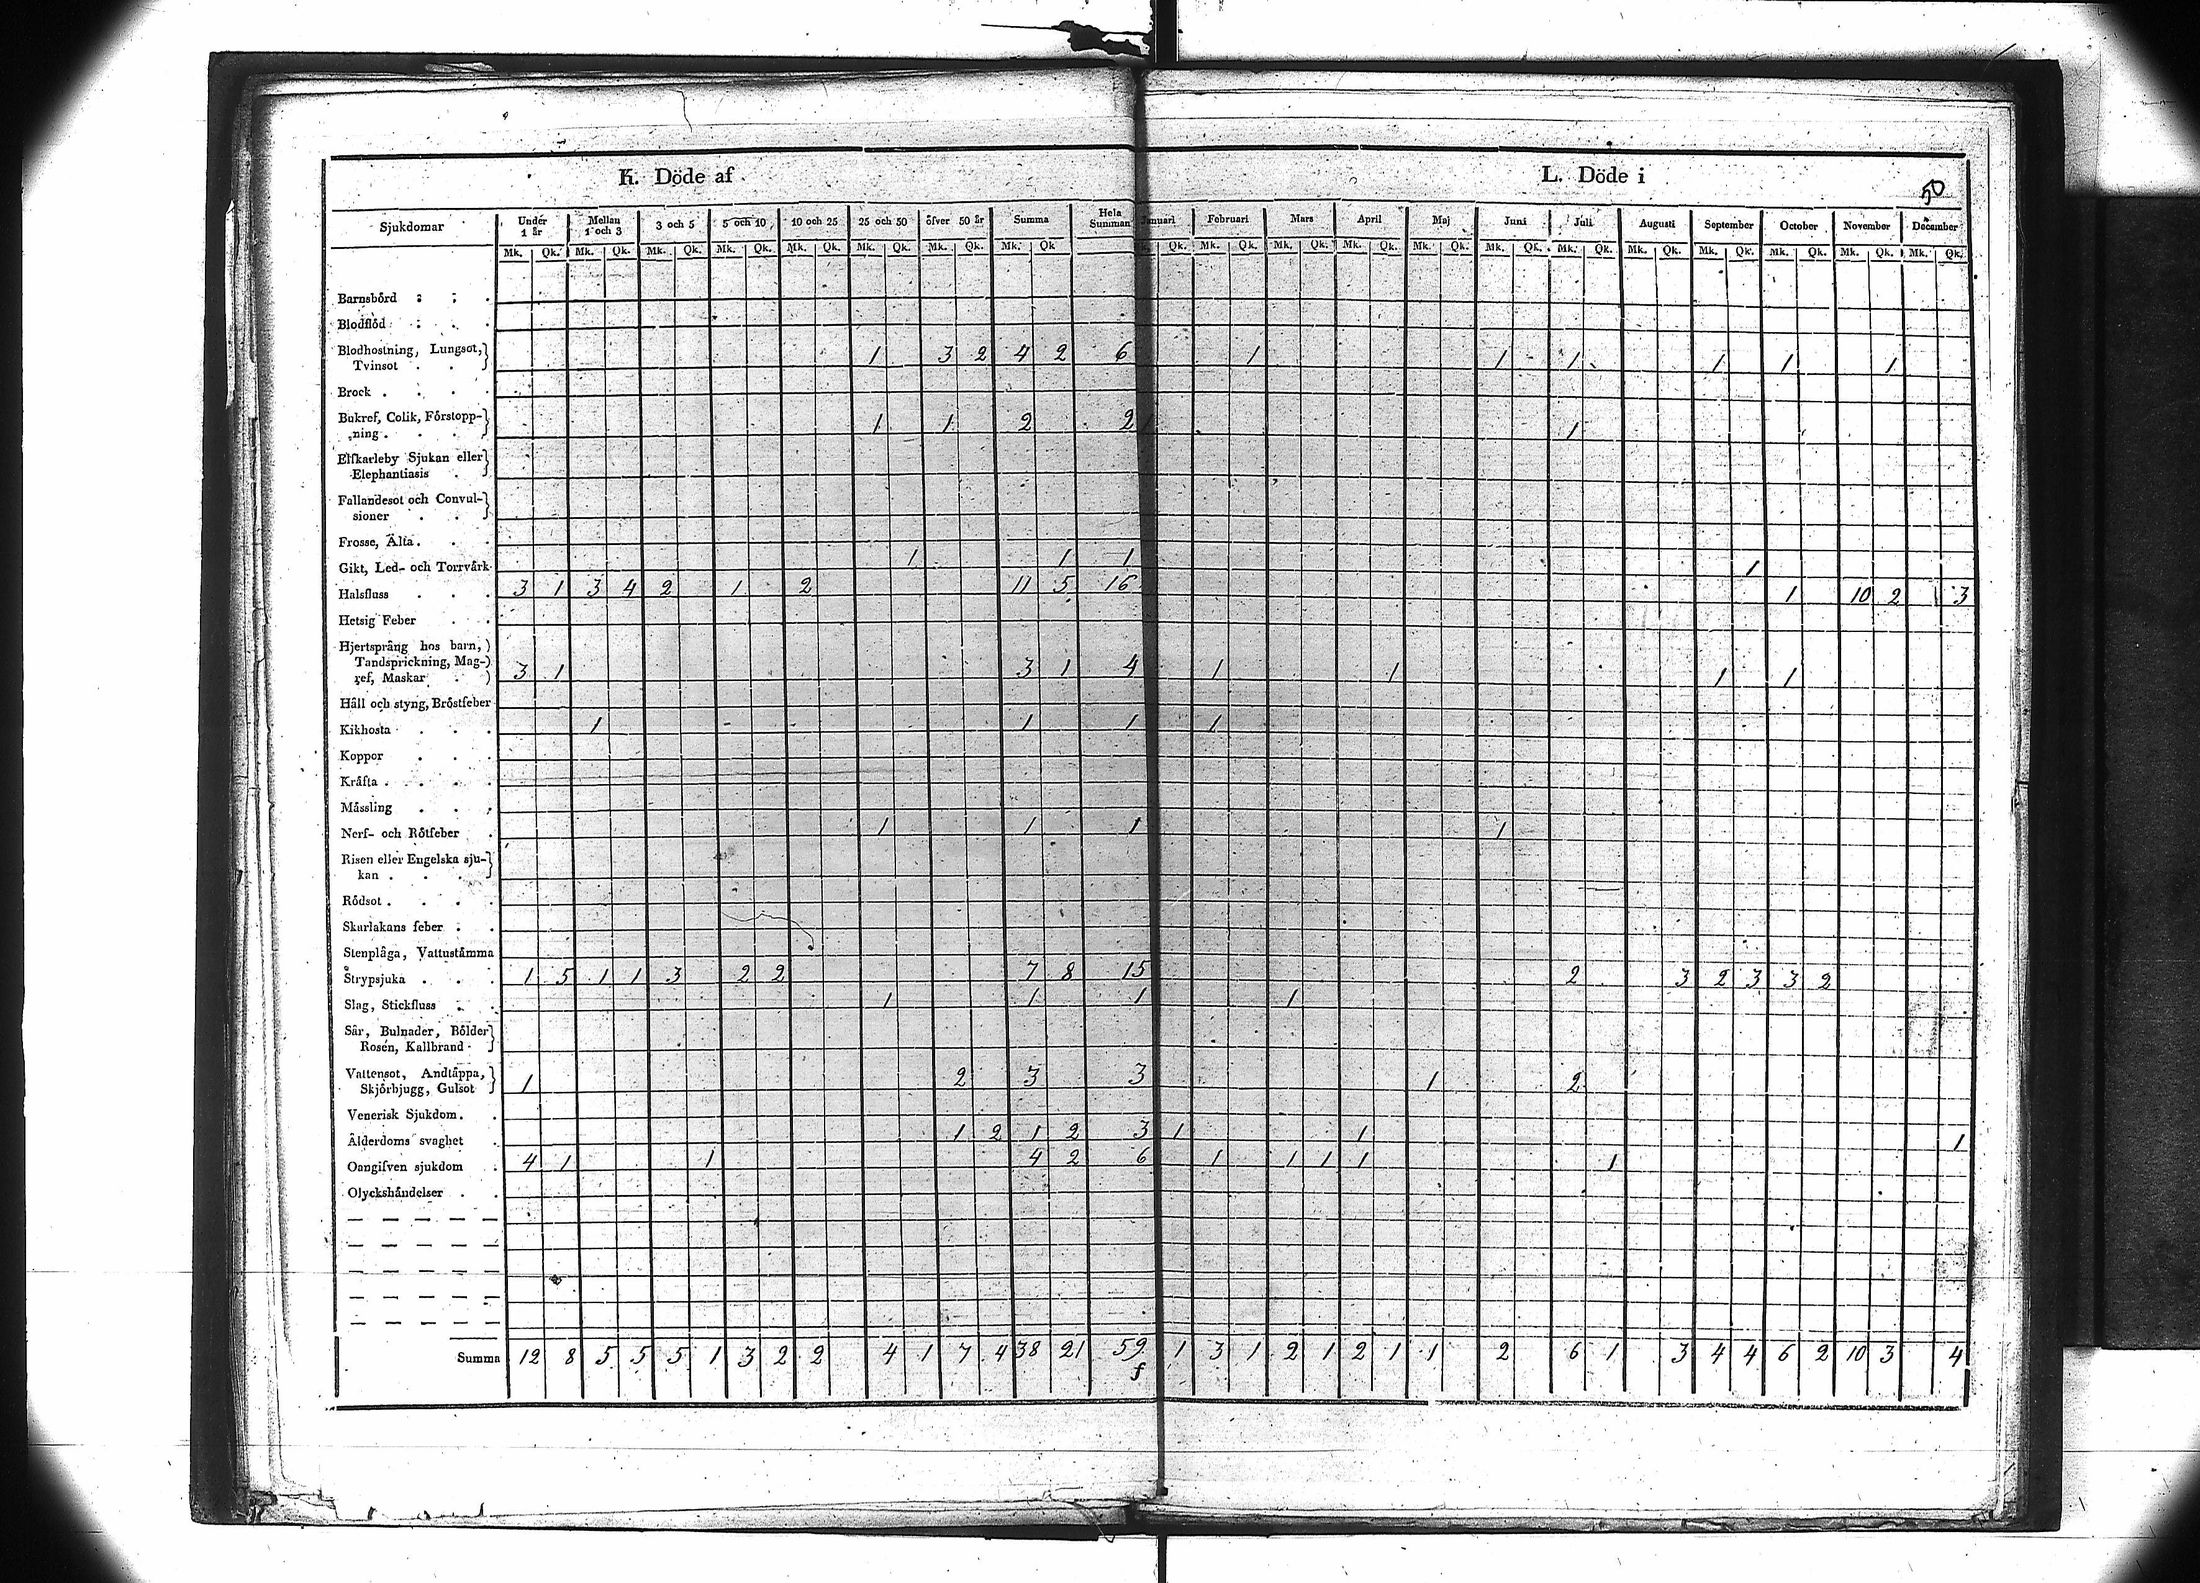 K. Döde af L. Döde i
50
Sjukdomar Under 1 år Mellan 1 och 3 3 och 5 5 och 10 10 och 25 25 och 50 öfver 50 år Summa Hela Summan Januari Februari Mars April Maj Juni Juli Augusti September October November December
Mk. Qk. Mk. Qk. Mk. Qk. Mk. Qk. Mk. Qk. Mk. Qk. Mk. Qk. Mk. Qk Qk. Mk. Qk. Mk. Qk. Mk. Qk. Mk. Qk. Mk. Qk. Mk. Qk. Mk. Qk. Mk. Qk. Mk. Qk. Mk. Qk. Mk. Qk.
Barnsbörd
Blodflöd
Blodhostning, Lungsot,
Tvinsot 1 3 2 4 2 6 1 1 1 1 1 1
Brock
Bukref, Colik, Förstopp-
ning 1 1 2 2 1 1
Elfkarleby Sjukan eller
Elephantiasis
Fallandesot och Convul-
sioner
Frosse, Älta
Gikt, Led- och Torrvärk 1 1 1 1
Halsfluss 3 1 3 4 2 1 2 11 5 16 1 10 2 3
Hetsig Feber
Hjertsprång hos barn,
Tandsprickning, Mag-
ref, Maskar 3 1 3 1 4 1 1 1 1
Håll och styng, Bröstfeber
Kikhosta 1 1 1 1
Koppor
Kräfta
Mässling
Nerf- och Rötfeber 1 1 1 1
Risen eller Engelska sju-
kan
Rödsot
Skarlakans feber
Stenplåga, Vattustämma
Strypsjuka 1 5 1 1 3 2 2 7 8 15 2 3 2 3 3 2
Slag, Stickfluss 1 1 1 1
Sår, Bulnader, Rölder
Rosen, Kallbrand
Vattensot, Andtäppa,
Skjörbjugg, Gulsot 1 2 3 3 1 2
Venerisk Sjukdom
Ålderdoms svaghet 1 2 1 2 3 1 1 1
Oangifven sjukdom 4 1 1 4 2 6 1 1 1 1 1
Olyckshändelser
Summa 12 8 5 5 5 1 3 2 2 4 1 7 4 38 21 59 1 3 1 2 1 2 1 1 2 6 1 3 4 4 6 2 10 3 4